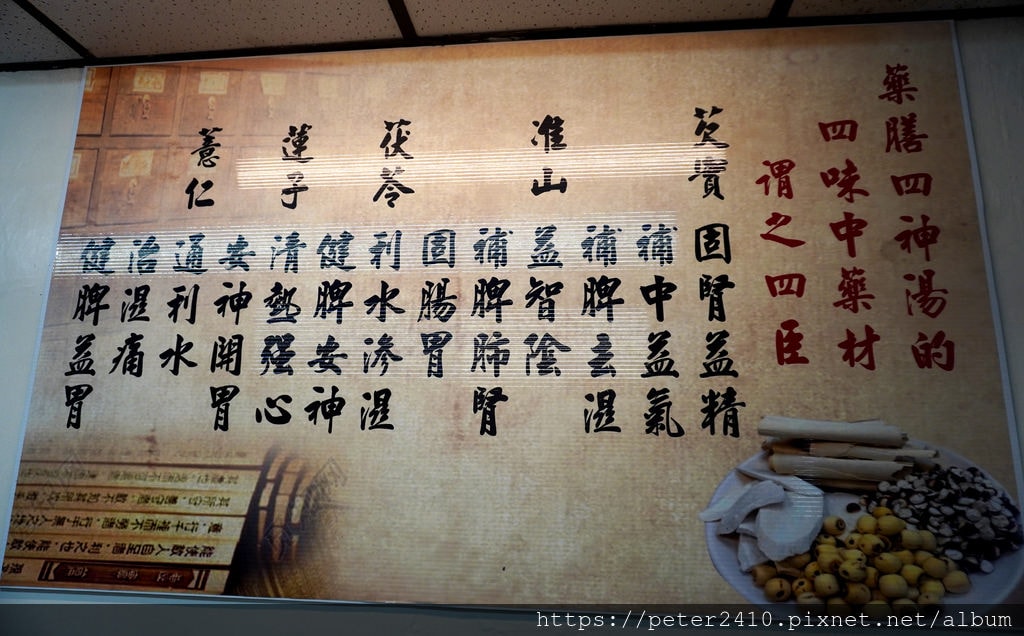 藥膳四神湯的
四味中藥材
謂之四臣
芡實
固腎益精
補中益氣
補脾去濕
淮山
益智陰
補脾肺腎
固腸胃
茯苓
利水滲濕
健脾安神
蓮子
清熱强心
安神開胃
薏仁
通利水
治濕痛
健脾益胃
https://peter2410.pixnet.net/album